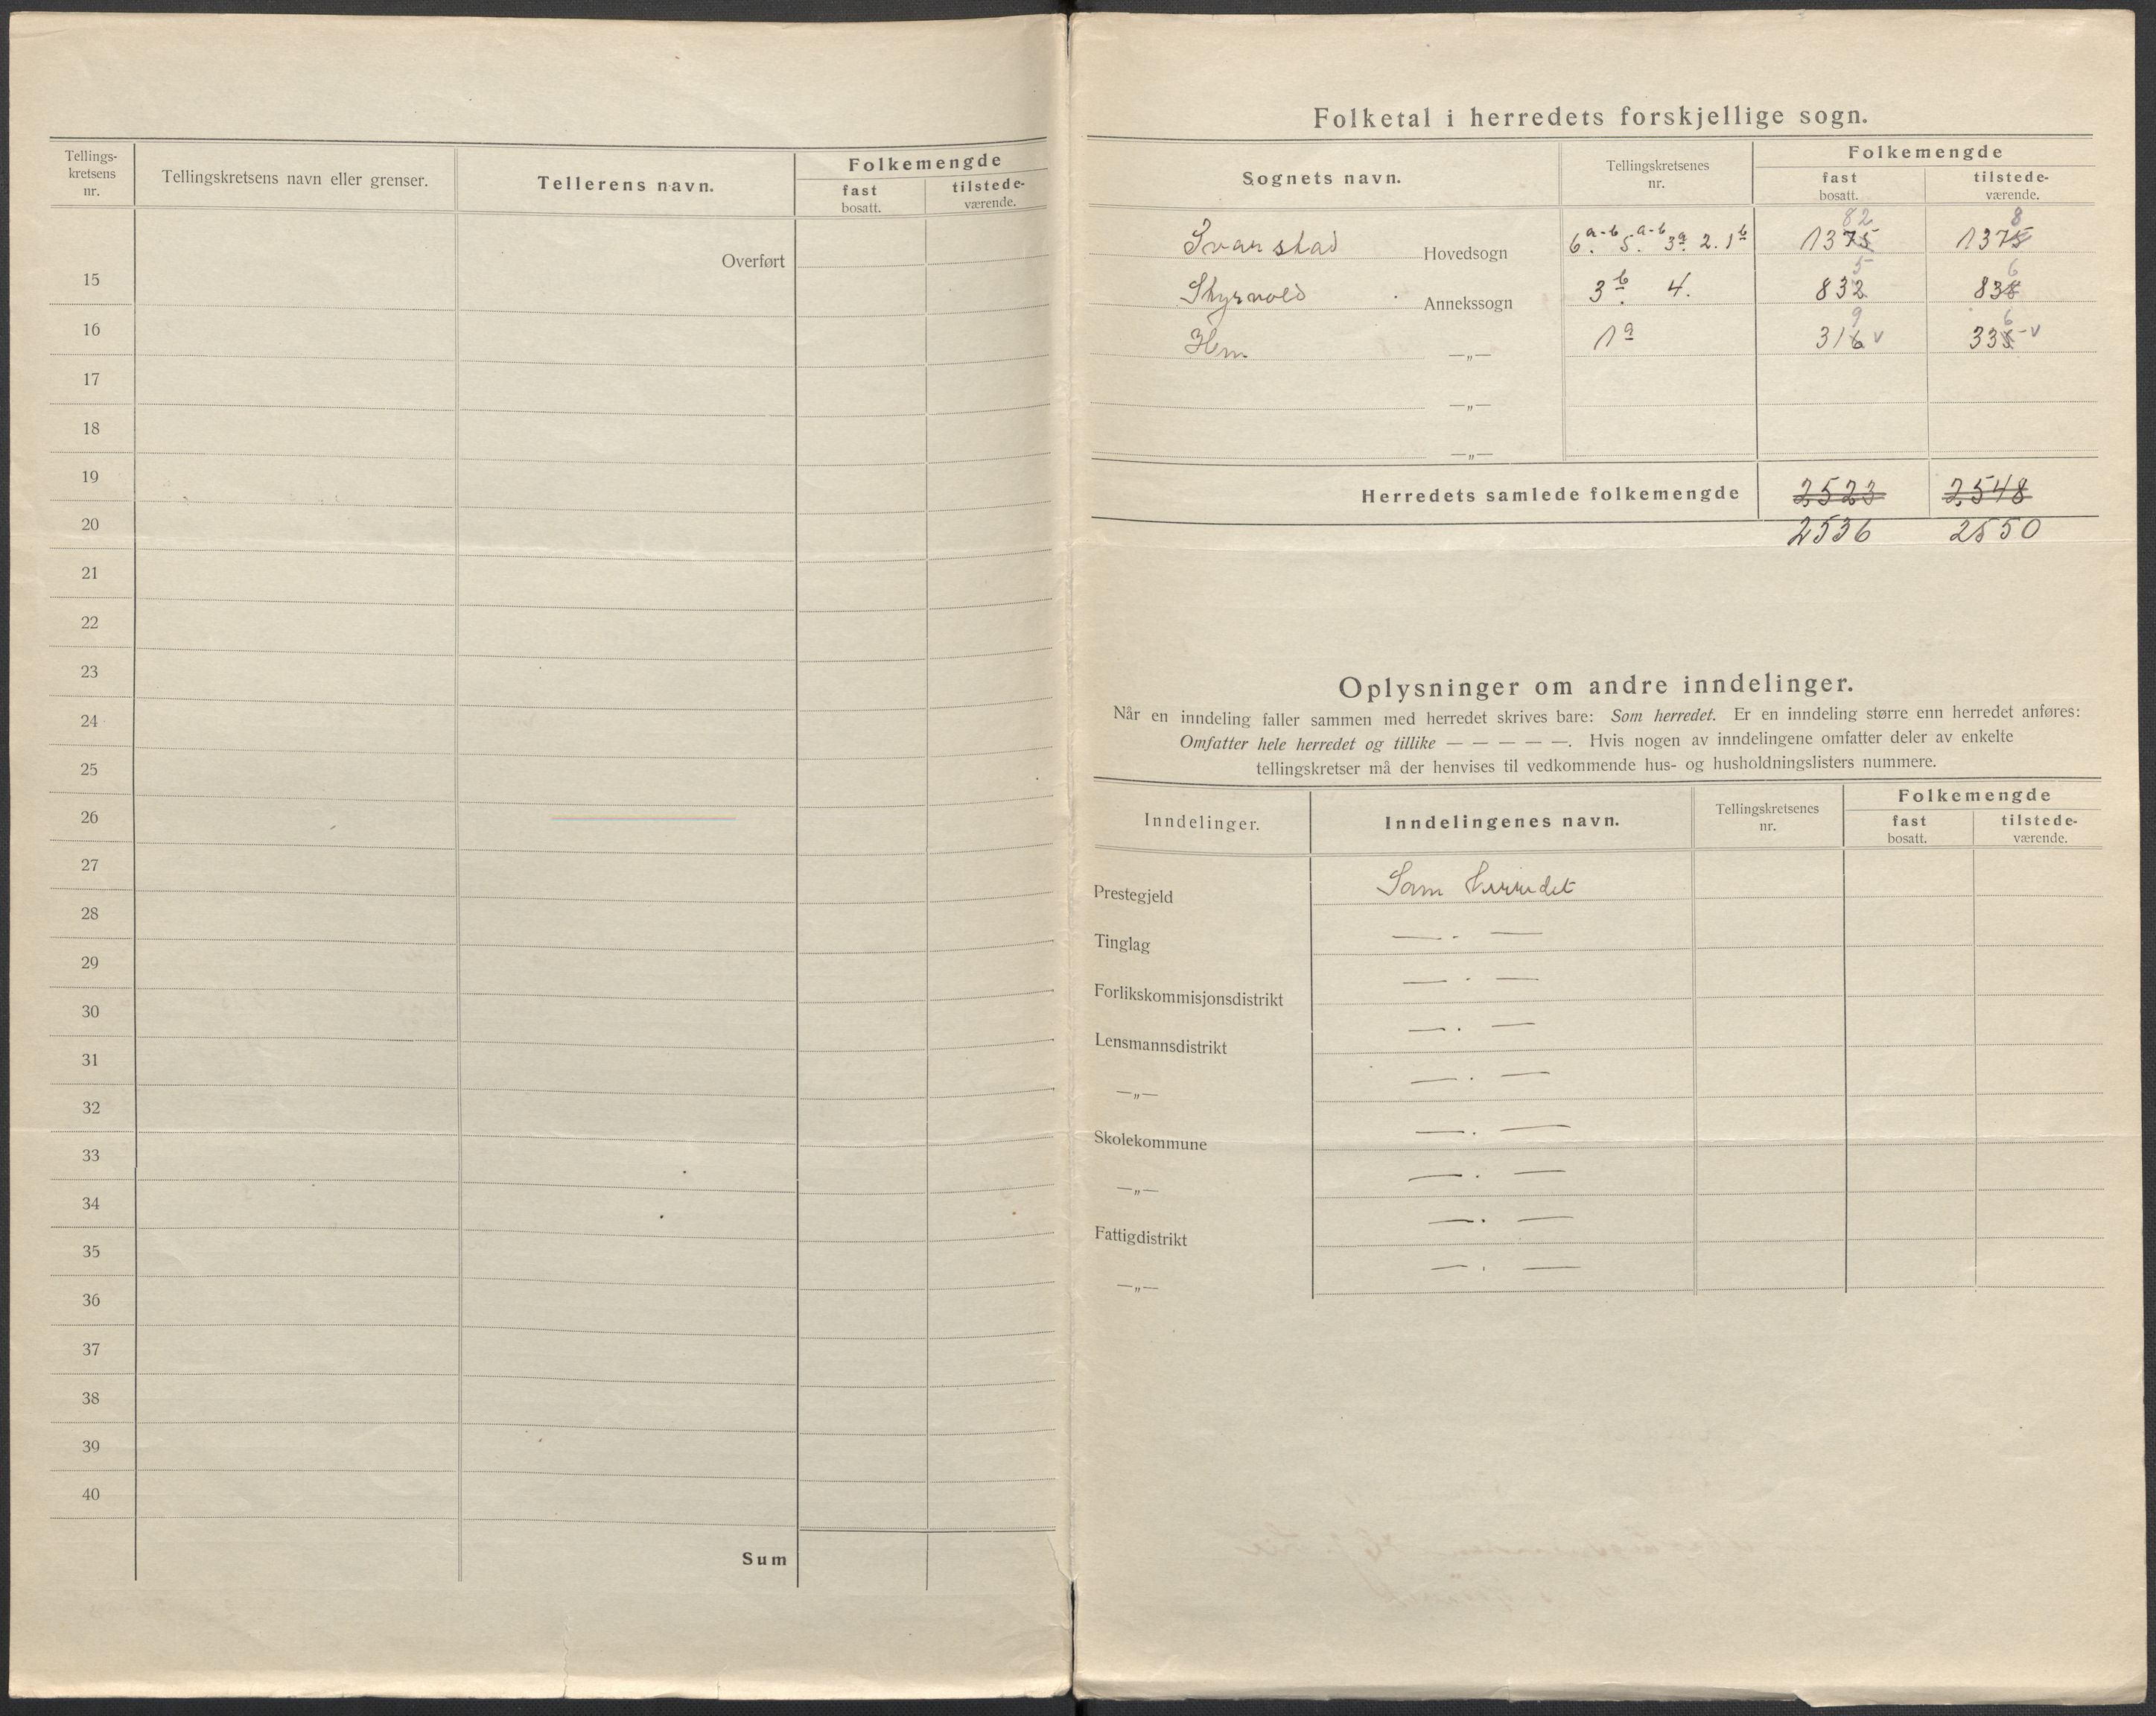 Tellings-
kretsens
nr.
Tellingskretsens navn eller grenser.
Tellerens navn.
Folkemengde
fast
bosatt.
tilstede-
værende.
Overført
15
16
17
18
19
20
21
22
23
24
25
26
27
28
29
30
31
32
33
34
35
36
37
38
39
40
Sum
Folketal i herredets forskjellige sogn.
Sognets navn.
Tellingskretsenes
nr.
Folkemengde
fast
bosatt.
tilstede-
værende.
82 8
Svarstad Hovedsogn 6 a-b. 5 a-b. 3 a. 2. 1 b 1375 1375
5 6
Styrvold Annekssogn 3 b. 4. 832 838
9 6
Hem —„— 1 a 316 v 335 - v
—„—
—„—
Herredets samlede folkemengde 2523 2548
2536 2550
Oplysninger om andre inndelinger.
Når en inndeling faller sammen med herredet skrives bare: Som herredet. Er en inndeling større enn herredet anføres:
Omfatter hele herredet og tillike — — — — —. Hvis nogen av inndelingene omfatter deler av enkelte
tellingskretser må der henvises til vedkommende hus- og husholdningslisters nummere.
Inndelinger.
Inndelingenes navn.
Tellingskretsenes
nr.
Folkemengde
fast
bosatt.
tilstede-
værende.
Prestegjeld Som herredet
Tinglag — . —
Forlikskommisjonsdistrikt — . —
Lensmannsdistrikt — . —
—„— — . —
Skolekommune — . —
—„— — . —
Fattigdistrikt — . —
—„— — . —